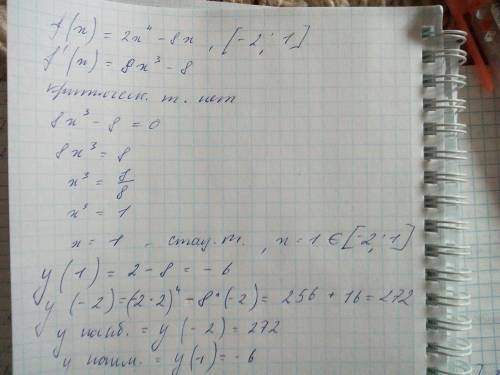 f(x) = 2x⁴ - 8x , [-2; 1]
f'(x) = 8x³ - 8
критическ. т. нет
8x³ - 8 = 0
8x³ = 8
x³ = 8/8
x³ = 1
x = 1 - стац. т. , x = 1 ∈ [-2; 1]
y(1) = 2 - 8 = -6
y(-2) = (-2·2)⁴ - 8·(-2) = 256 + 16 = 272
y наиб. = y(-2) = 272
y наим. = y(1) = -6